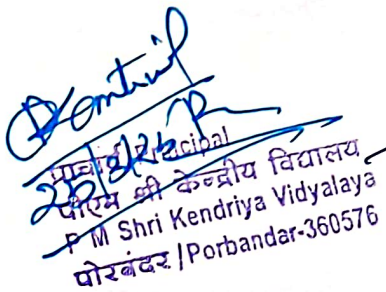 प्राचार्य/Principal
पीएम श्री केन्द्रीय विद्यालय
P M Shri Kendriya Vidyalaya
पोरबंदर/Porbandar-360576